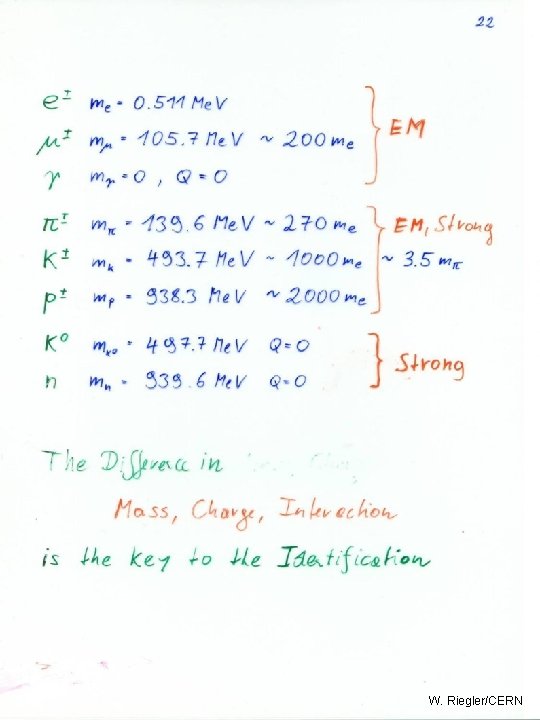 22
e± me = 0.511 MeV
μ± mμ = 105.7 MeV ~ 200 me } EM
γ mγ = 0 , Q = 0
π± mπ = 139.6 MeV ~ 270 me } EM, Strong
K± mk = 493.7 MeV ~ 1000 me ~ 3.5 mπ
p± mp = 938.3 MeV ~ 2000 me
K⁰ mK⁰ = 497.7 MeV Q=0 } Strong
n mn = 939.6 MeV Q=0
The Difference in
Mass, Charge, Interaction
is the key to the Identification
W. Riegler/CERN